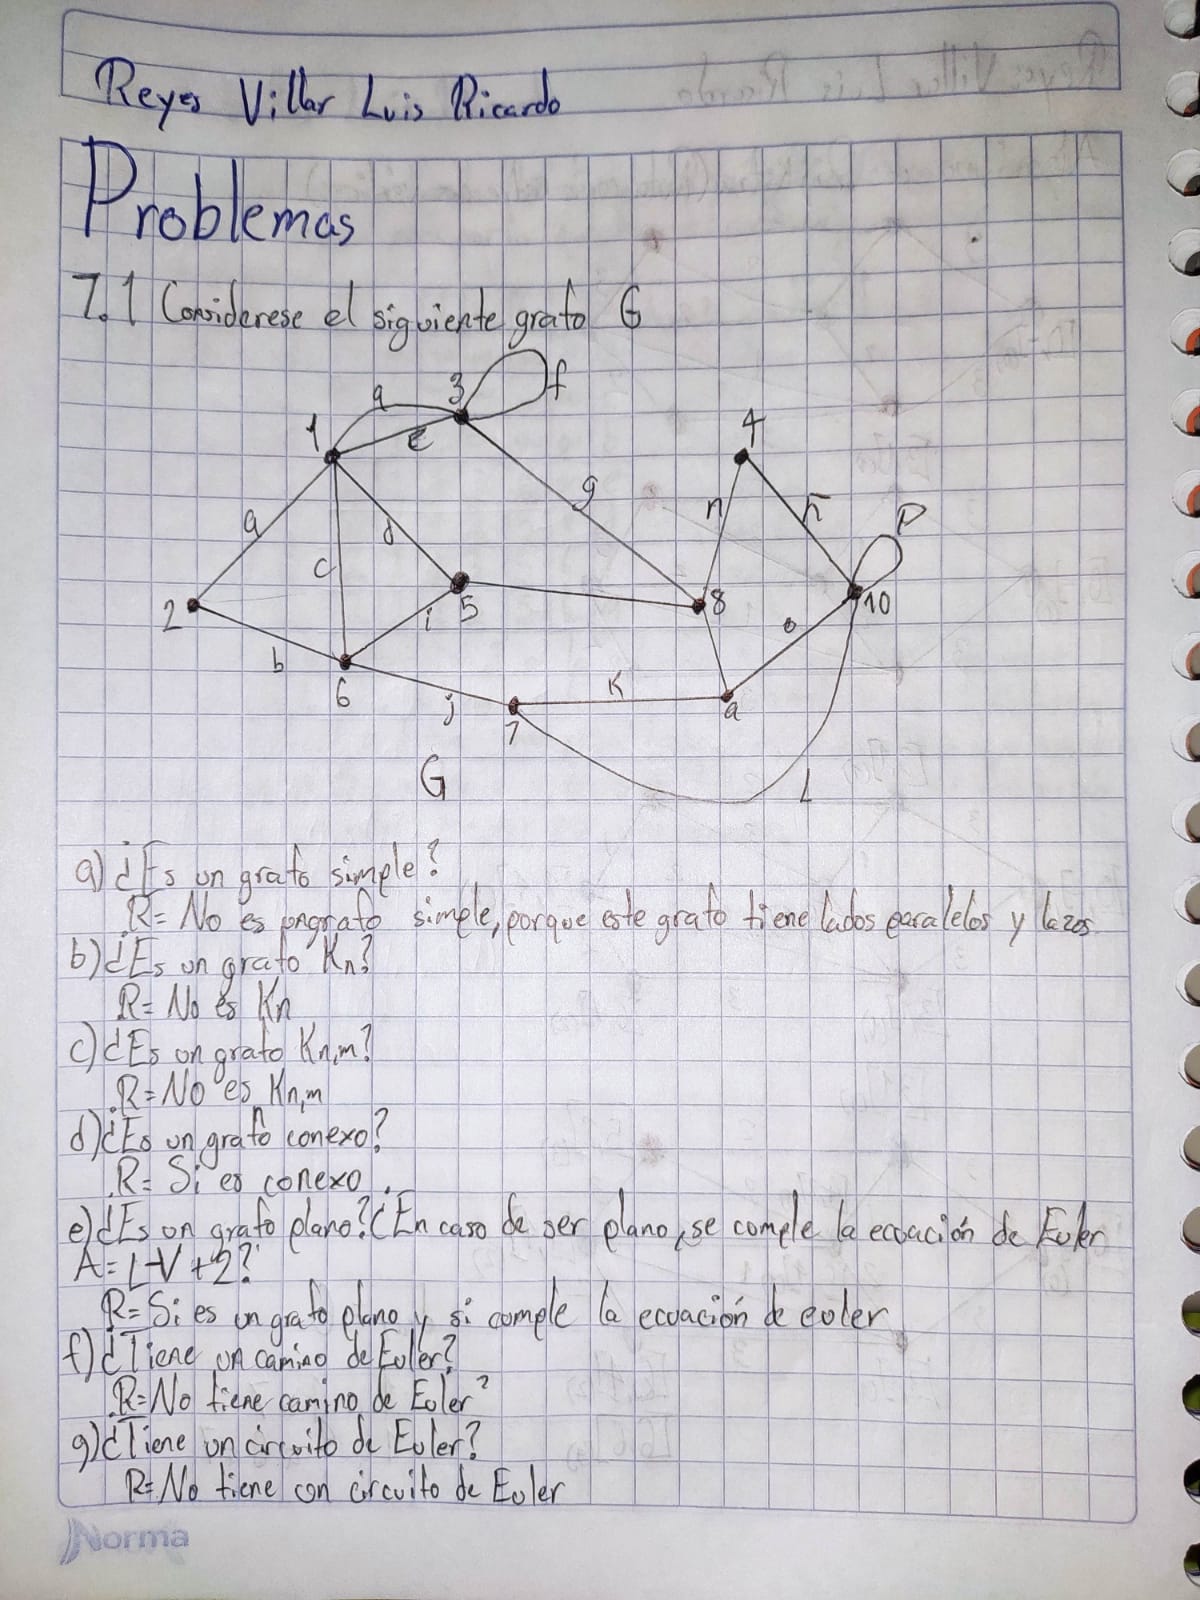 Reyes Villar Luis Ricardo
Problemas
7.1 Considerese el siguiente grafo G
a
3
f
1
e
4
g
n
ñ
P
a
d
c
2
i
5
8
10
b
6
j
7
K
o
a
L
G
a) ¿Es un grafo simple?
R= No es un grafo simple, porque este grafo tiene lados paralelos y lazos.
b) ¿Es un grafo Kn?
R= No es Kn
c) ¿Es un grafo Kn,m?
R= No es Kn,m
d) ¿Es un grafo conexo?
R= Si es conexo.
e) ¿Es un grafo plano? ¿En caso de ser plano, se comple la ecuación de Euler
A= L-V+2?
R= Si es un grafo plano y si comple la ecuación de euler
f) ¿Tiene un camino de Euler?
R= No tiene camino de Euler?
g) ¿Tiene un circuito de Euler?
R= No tiene con circuito de Euler
Norma